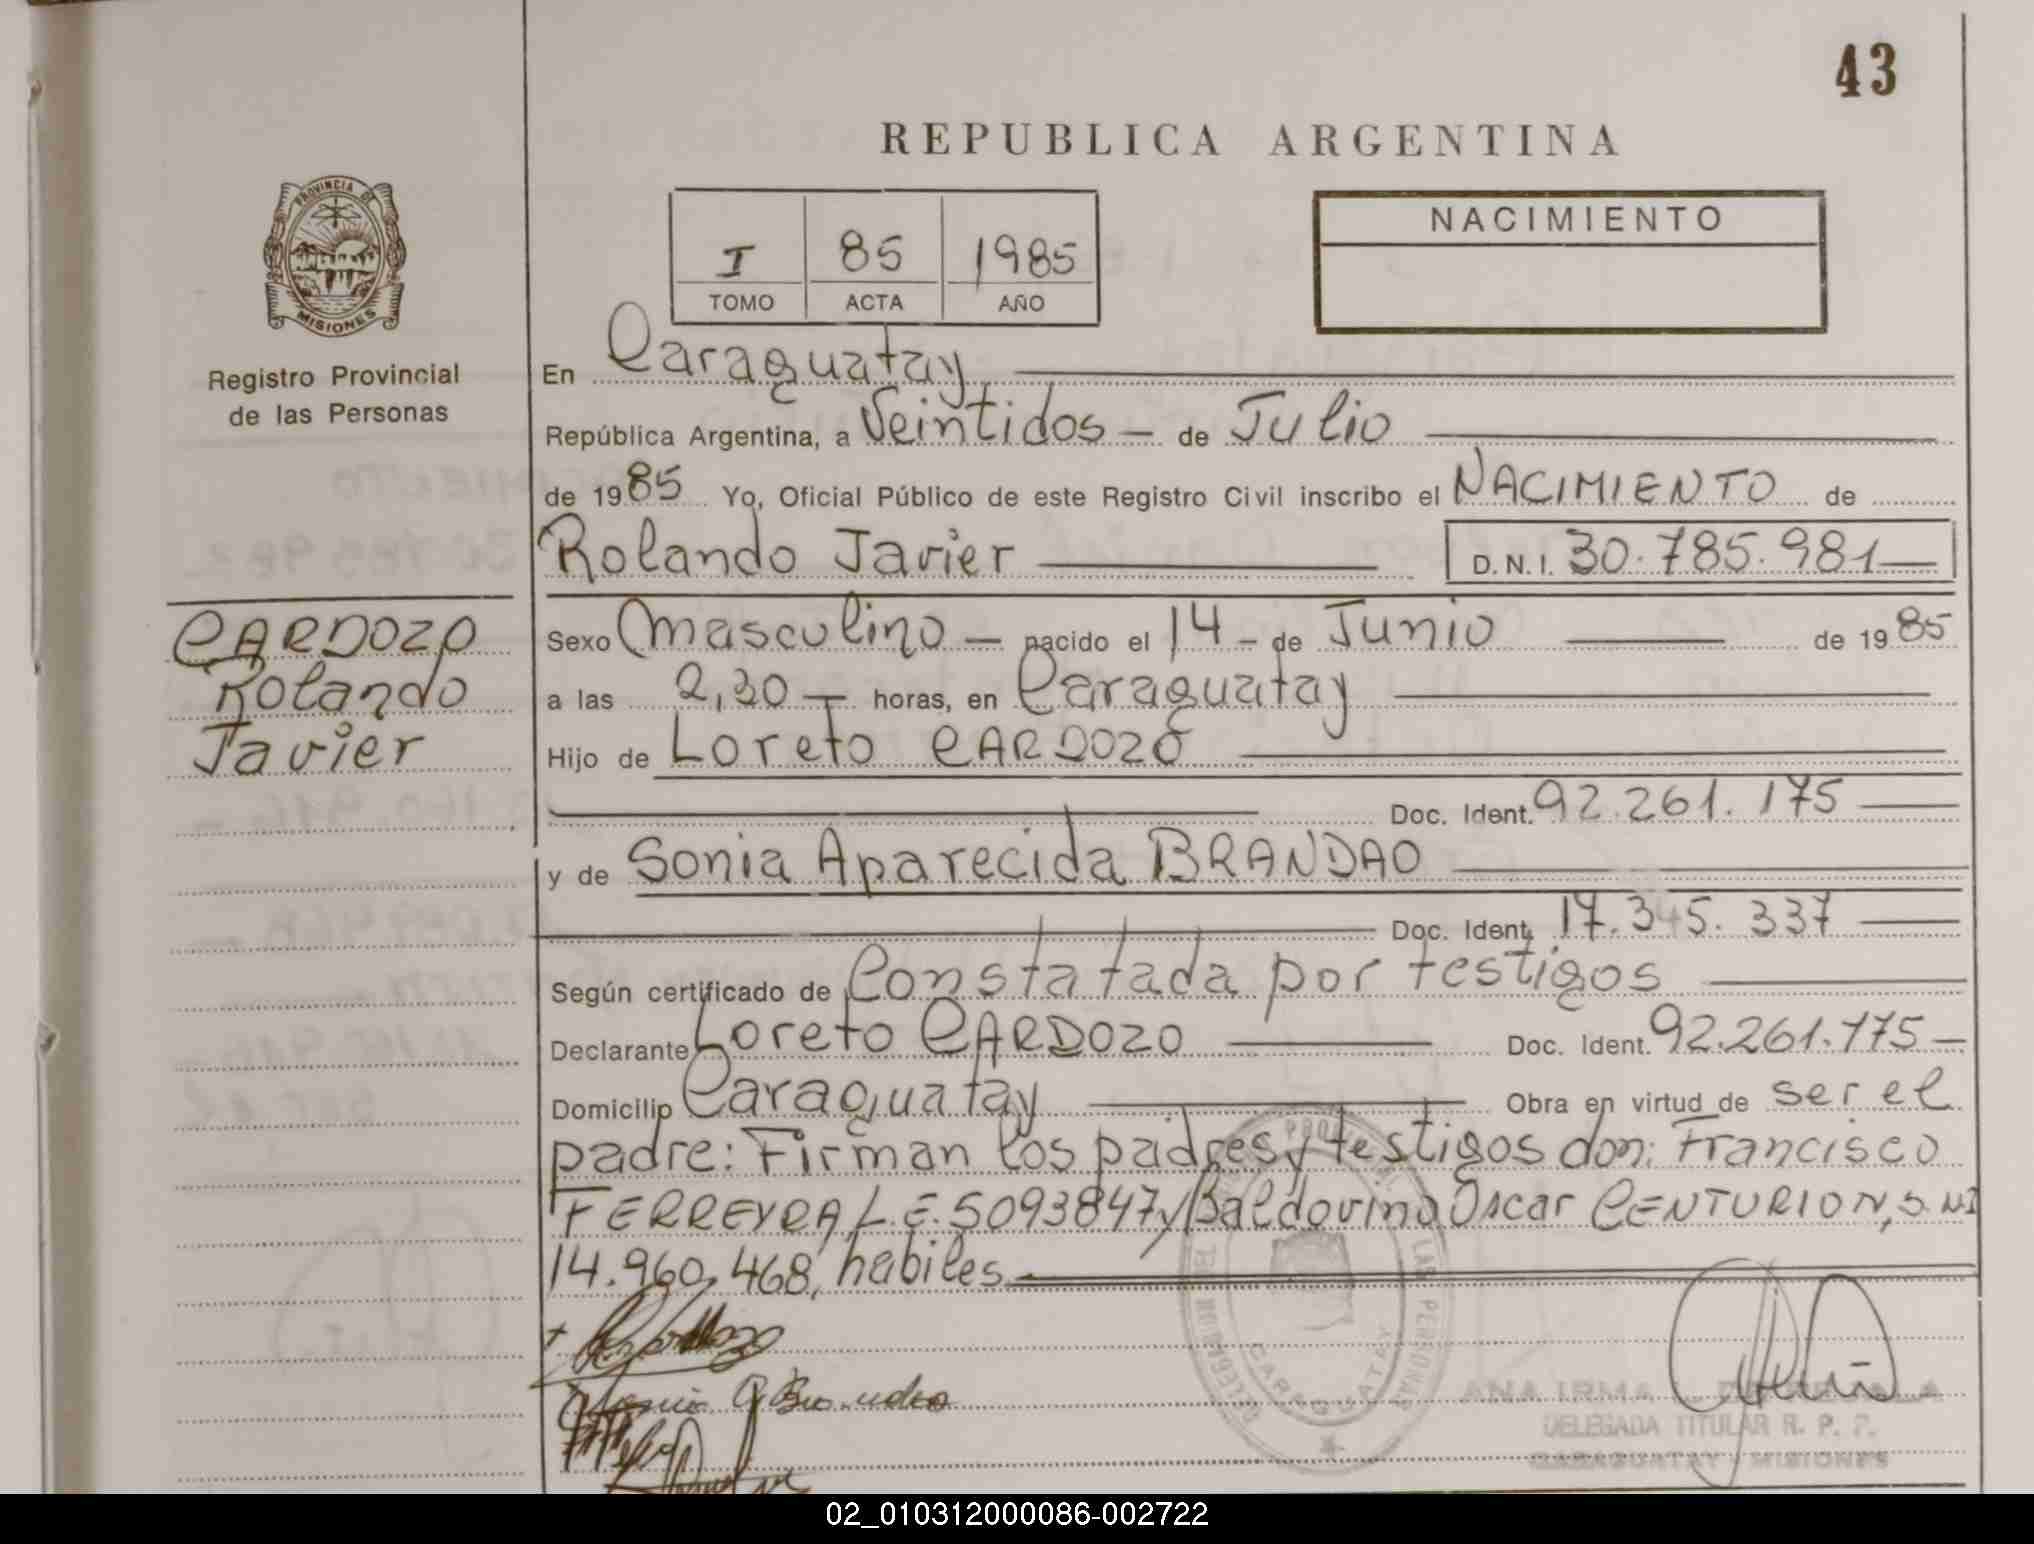 43
REPUBLICA ARGENTINA
PROVINCIA DE
MISIONES
Registro Provincial
de las Personas
I 85 1985
TOMO ACTA AÑO
NACIMIENTO
En Caraguatay
República Argentina, a Veintidos - de Julio
de 1985 Yo, Oficial Público de este Registro Civil inscribo el NACIMIENTO de
Rolando Javier D.N.I. 30.785.981
CARDOZO
Rolando
Javier
Sexo Masculino - nacido el 14 - de Junio de 1985
a las 2,30 - horas, en Caraguatay
Hijo de Loreto CARDOZO
Doc. Ident. 92.261.175
y de Sonia Aparecida BRANDAO
Doc. Ident. 17.345.337
Según certificado de Constatada por testigos
Declarante Loreto CARDOZO Doc. Ident. 92.261.175 -
Domicilio Caraguatay Obra en virtud de ser el
padre: Firman los padres y testigos don: Francisco
FERREYRA, L.E. 5093847 y Baldovino Oscar CENTURION, D.N.I
14.960.468, habiles
CARAGUATAY
ANA IRMA
DELEGADA TITULAR R. P. P.
CARAGUATAY - MISIONES
02_010312000086-002722